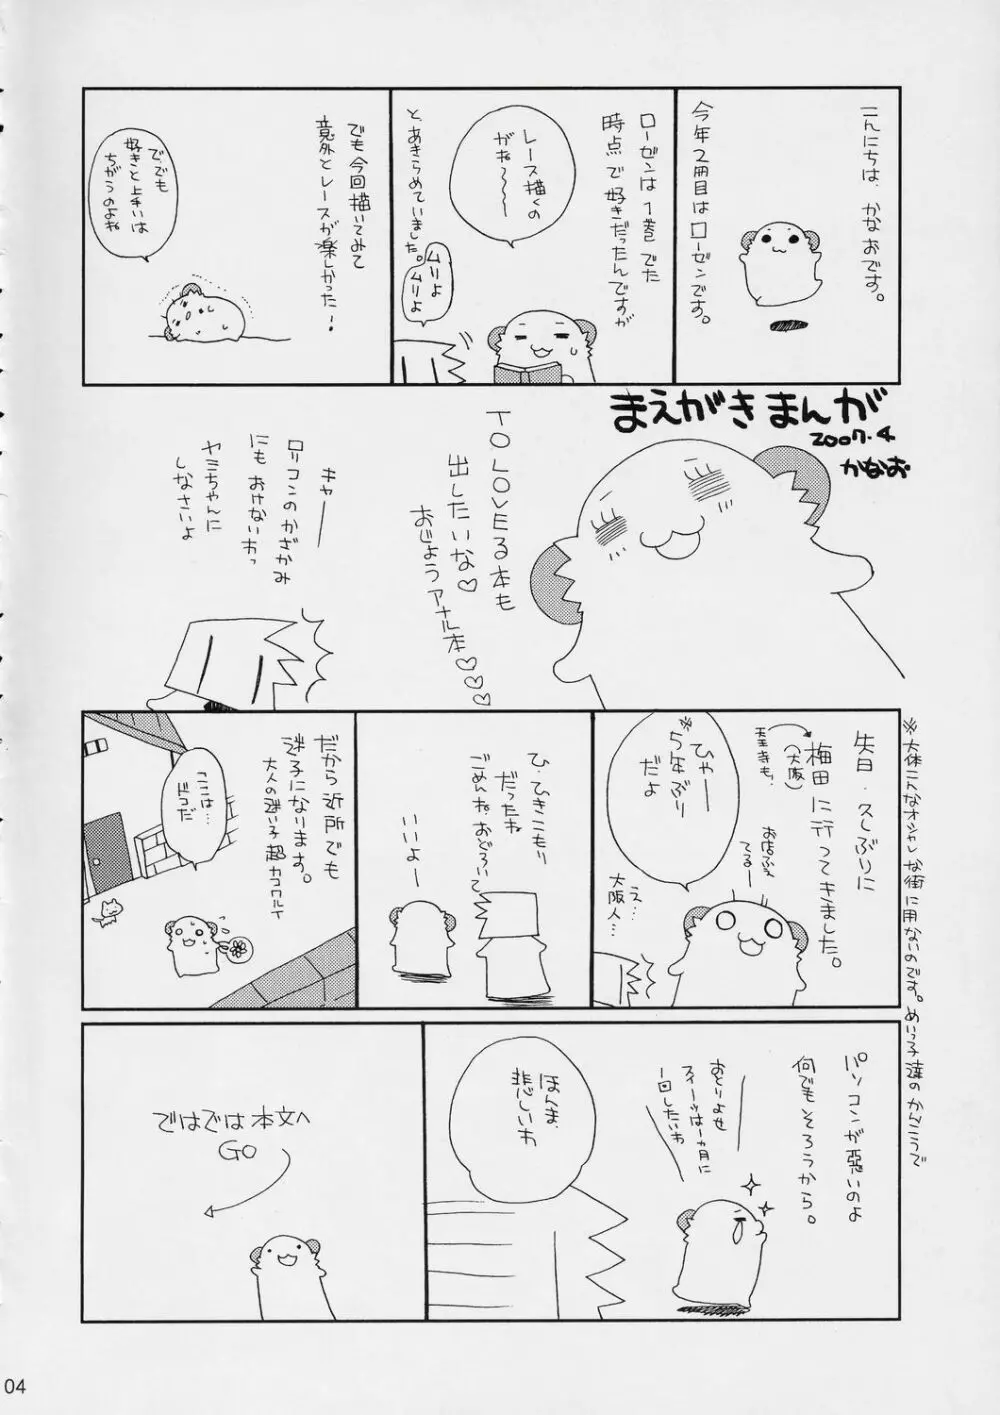 こんにちは、かなおです。
今年2冊目はローゼンです。
ローゼンは1巻でた
時点で好きだったんですが
レース描くの
がね〜〜〜
と、あきらめていました。
ムリよ
ムリよ
でも今回描いてみて
意外とレースが楽しかった!
で、でも
好きと上手いは
ちがうのよね
まえがきまんが
2007.4
かなお
TO LOVEる本も
出したいな♡
おじょうアナル本♡♡♡
キャーー
ロリコンのかざかみ
にもおけないわっ
ヤミちゃんに
しなさいよ
先日、久しぶりに
梅田に行ってきました。
(大阪)
天王寺も。
お店ふえ
てるー
ひゃー
※5年ぶり
だよ
え…
大阪人…
※大体こんなオシャレな街に用ないのです。めいっ子達のかんこうで
ひ、ひきこもり
だったね
ごめんね、おどろいて
いいよー
だから近所でも
迷子になります。
大人の迷い子超カコワルイ
ここは…
ドコだ
パソコンが悪いのよ
何でもそろうから。
おとりよせ
スイーツは一ヵ月に
一回したいわ
ほんま、
悲しいわ
ではでは本文へ
GO
04